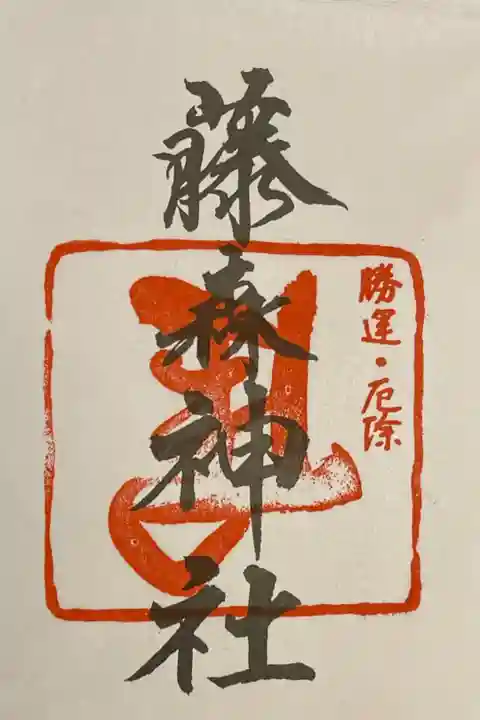 藤森神社
勝運・厄除